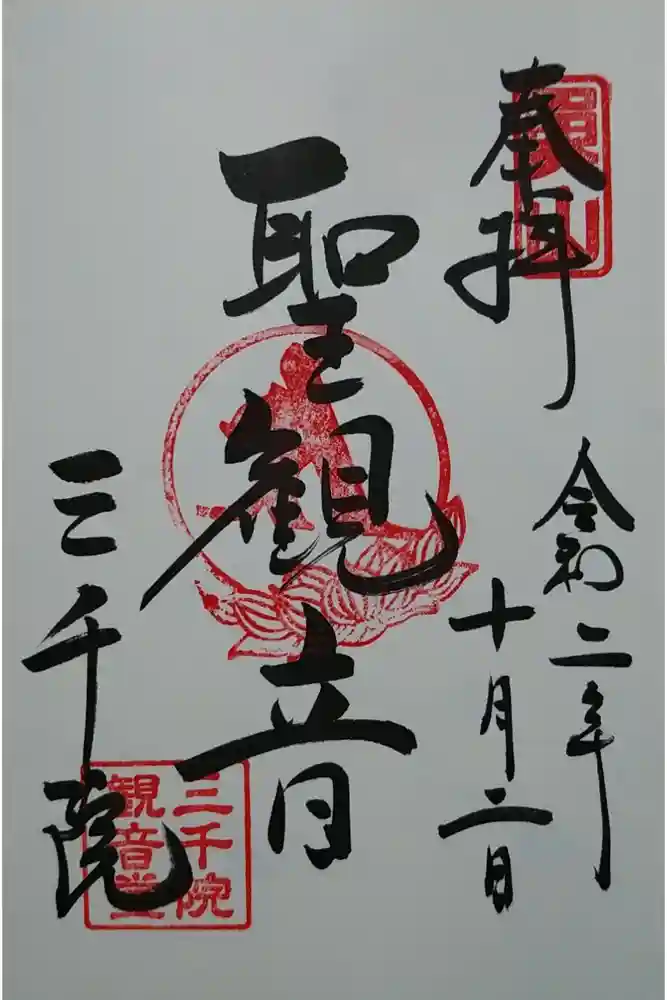 奉拝
令和二年
十月二日
聖観音
三千院
魚山
三千院
観音堂